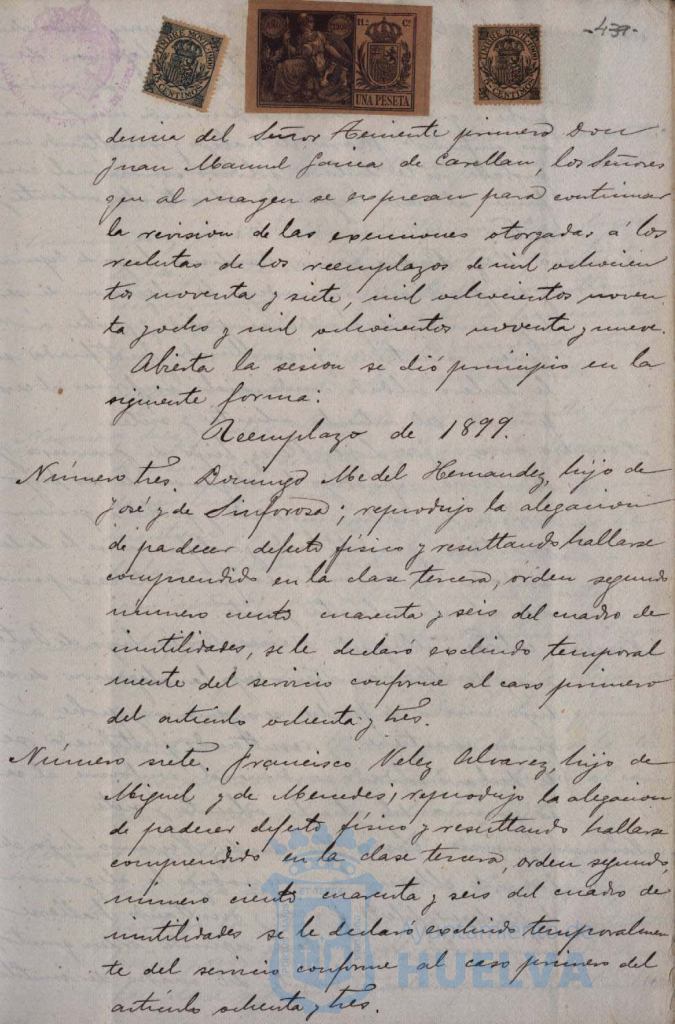 -437-
TIMBRE MOVIL 1900
CENTIMOS
AÑO 1900
11.ª Cª
UNA PESETA
TIMBRE MOVIL 1900
CENTIMOS
dencia del Señor Teniente primero Don
Juan Manuel García de Casellan, los Señores
que al margen se expresan para continuar
la revision de las exenciones otorgadas á los
reclutas de los reemplazos de mil ochocien
tos noventa y siete, mil ochocientos noven
ta y ocho y mil ochocientos noventa y nueve.
Abierta la sesion se dió principio en la
siguiente forma:
Reemplazo de 1899.
Número tres. Domingo Medel Hernandez, hijo de
José y de Sinforosa; reprodujo la alegacion
de padecer defecto físico y resultando hallarse
comprendido en la clase tercera, órden segundo
número ciento cuarenta y seis del cuadro de
inutilidades, se le declaró excluido temporal
mente del servicio conforme al caso primero
del artículo ochenta y tres.
Número siete. Francisco Velez Alvarez, hijo de
Miguel y de Mercedes; reprodujo la alegacion
de padecer defecto físico y resultando hallarse
comprendido en la clase tercera, orden segundo,
número ciento cuarenta y seis del cuadro de
inutilidades se le declaró excluido temporalmen
te del servicio conforme al caso primero del
artículo ochenta y tres.
Ayuntamiento de
HUELVA